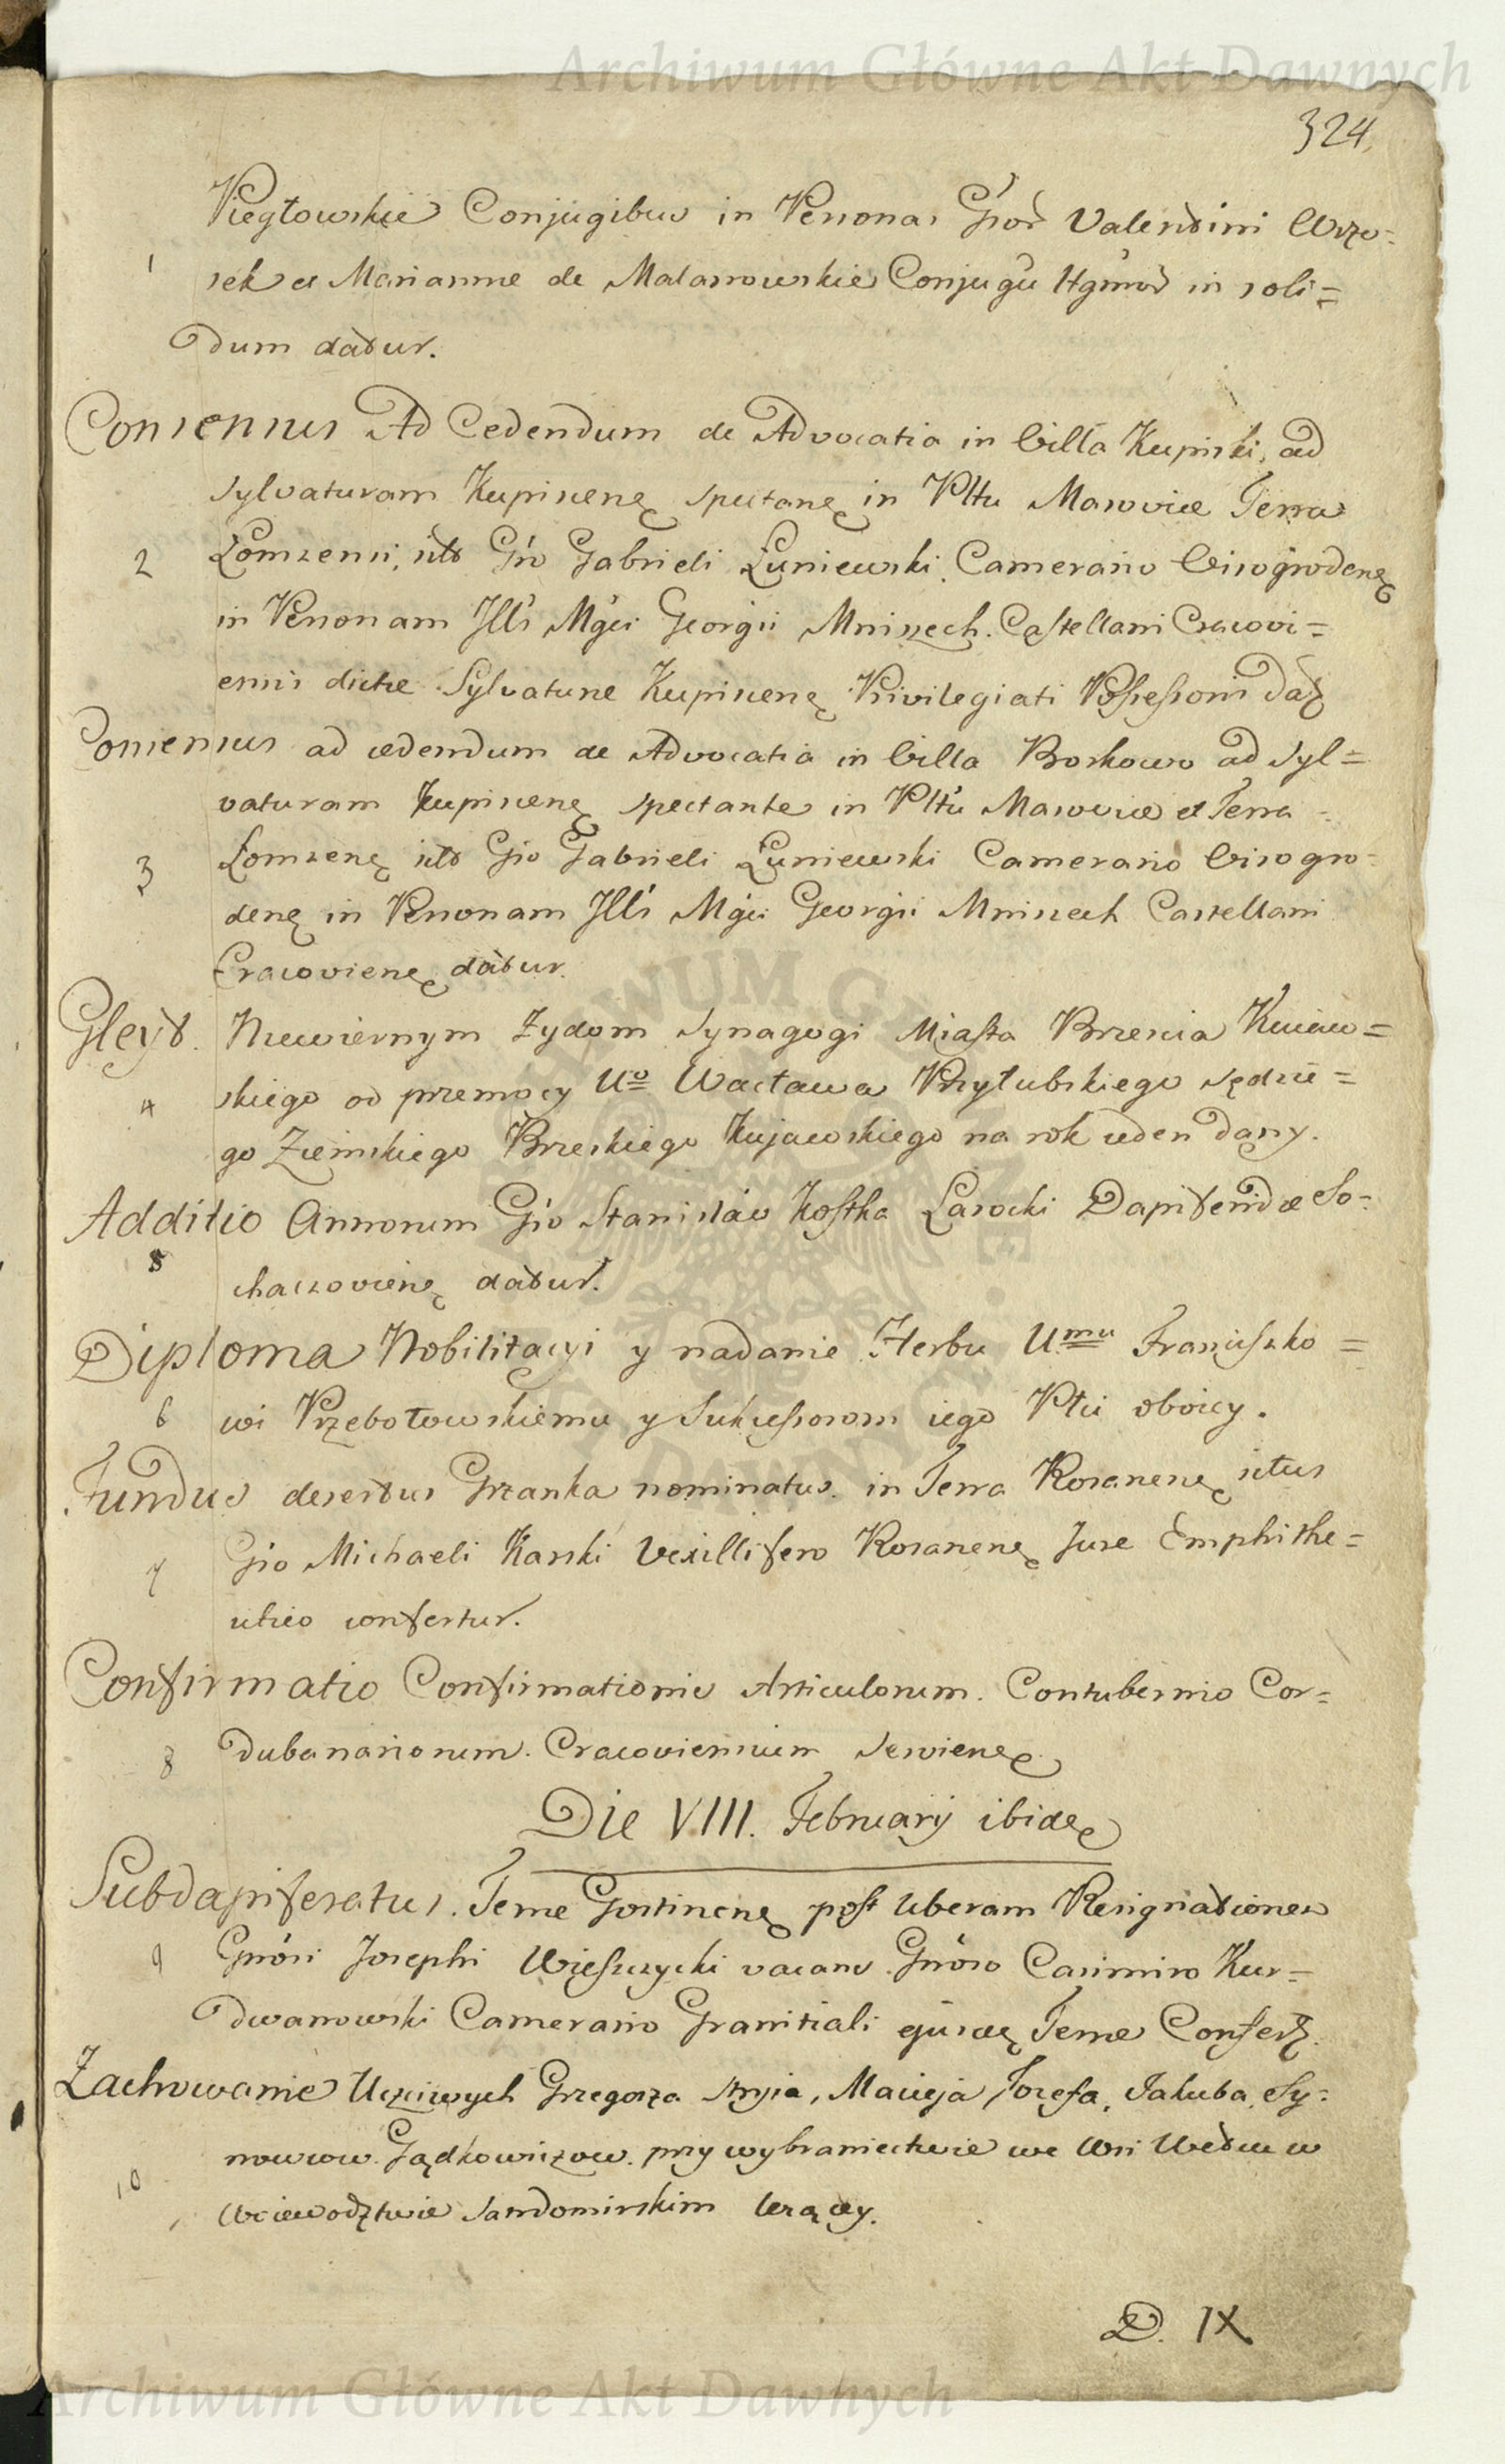 Archiwum Główne Akt Dawnych
324.
Piegłowskie Conjugibus in Personas Gsor Valentini Wrzo=
1 sek et Marianne de Malanowskie Conjugū Hgmor in soli=
dum datur.
Consensus Ad Cedendum de Advocatia in Villa Kupiski, ad
sylvaturam Kupiscenę spectanę in Pltu Masovice Terra
2 Łomzensi, sito Gso Gabrieli Łuniewski Camerario Visogrodenę
in Personam Jlls Mgci Georgii Mniszech Castellani Cracovi=
ensis dictæ Sylvaturæ Kupiscenę Privilegiati Possessoris daʒ
Consensus ad cedendum de Advocatia in Villa Boskowo ad syl=
vaturam Kupiscenę spectante in Pltu Masoviæ et Terra
3 Łomzenę sito Gso Gabrieli Łuniewski Camerario Visogro=
denę in Personam Jlls Mgci Georgii Mniszech Castellani
Cracovienę datur.
Gleyt. Niewiernym Zydom Synagogi Miasta Brzescia Kuiaw=
4 skiego od przemocy Uo Wacława Przyłubskiego sędzie=
go Ziemskiego Brzeskiego Kujawskiego na rok ieden dany.
Additio Annorum Gso Stanisław Kostka Lasocki Dapiferidæ So=
5 chaczovienę datur.
Diploma Nobilitacyi y nadanie Herbu Umu Franciszko=
6 wi Przebołowskiemu y Sukcessorom iego Płci oboiey.
Fundus desertus Grzanka nominatus in Terra Rosanenę situs
7 Gso Michaeli Karski Vexillifero Rosanenę Jure Emphithe=
utico confertur.
Confirmatio Confirmationis Articulorum. Contubernio Cor=
8 dubanariorum. Cracoviensium servienę
Die VIII. Februarij ibidę
Subdapiferatus. Terræ Gostinenę post liberam Resignationem
9 Gnosi Josephi Więszczycki vacans Gnoso Casimiro Kur=
dwanowski Camerario Granitiali ejusdę Terræ Conferʒ.
Zachowanie Uczciwych Grzegorza stryia, Macieja, Jozefa, Jakuba, Sy=
nowcow Gądkowiczow. przy wybraniectwie we Wsi w
10 Woiewodztwie Sandomirskim lezącey.
D. IX
Archiwum Główne Akt Dawnych